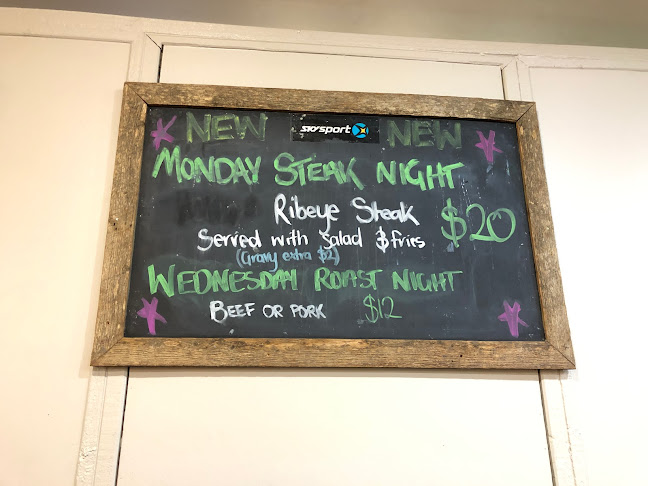 NEW sky sport NEW
MONDAY STEAK NIGHT
Ribeye Steak $20
Served with Salad & fries
(Gravy extra $2)
WEDNESDAY ROAST NIGHT
BEEF OR PORK $12